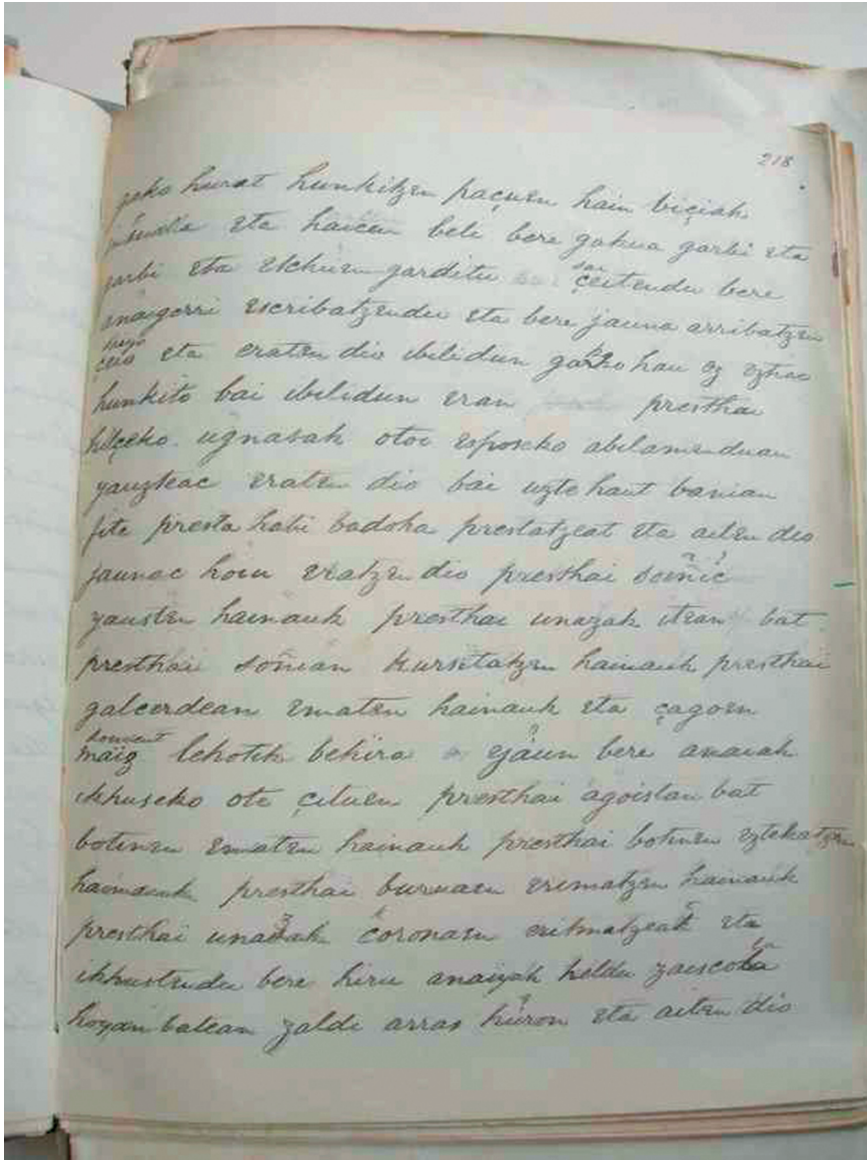 218
gako hurat hunkitzen paçuen hain biçiak
eta haicen bele bere gakua garbi eta
garbi eta elchuen garditu sai çeitendu bere
anaigerri escribatzendu eta bere jauna arribatzen
çeio eta eraten dio ibilidun gakho hau ez eztiac
hunkito bai ibilidun eran presthai
hilçeko ugnasak otoi esposeko abilamenduan
yauzteac eraten dio bai uzte haut banian
fite presta hadi badoha prestatzeat eta aiten dio
jaunac hoiu eratzen dio presthai soiñic
yausten hainauk presthai unazak itean bat
presthai soñian kursetatzen hainauk presthai
galcerdean ematen hainauk eta çagoen
maiz lehotik behira ejaun bere anaiak
ikhuseko ote çituen presthai agoislan bat
botinen ematen hainauk presthai botinen eztekatzen
hainauk presthai buruaen erematzen hainauk
presthai unazak coronaen eritmatzeat eta
ikhustendu bere hiru anaiyak heldu zaiscola
hoyan batean zaldi arras hüron eta aiten dio